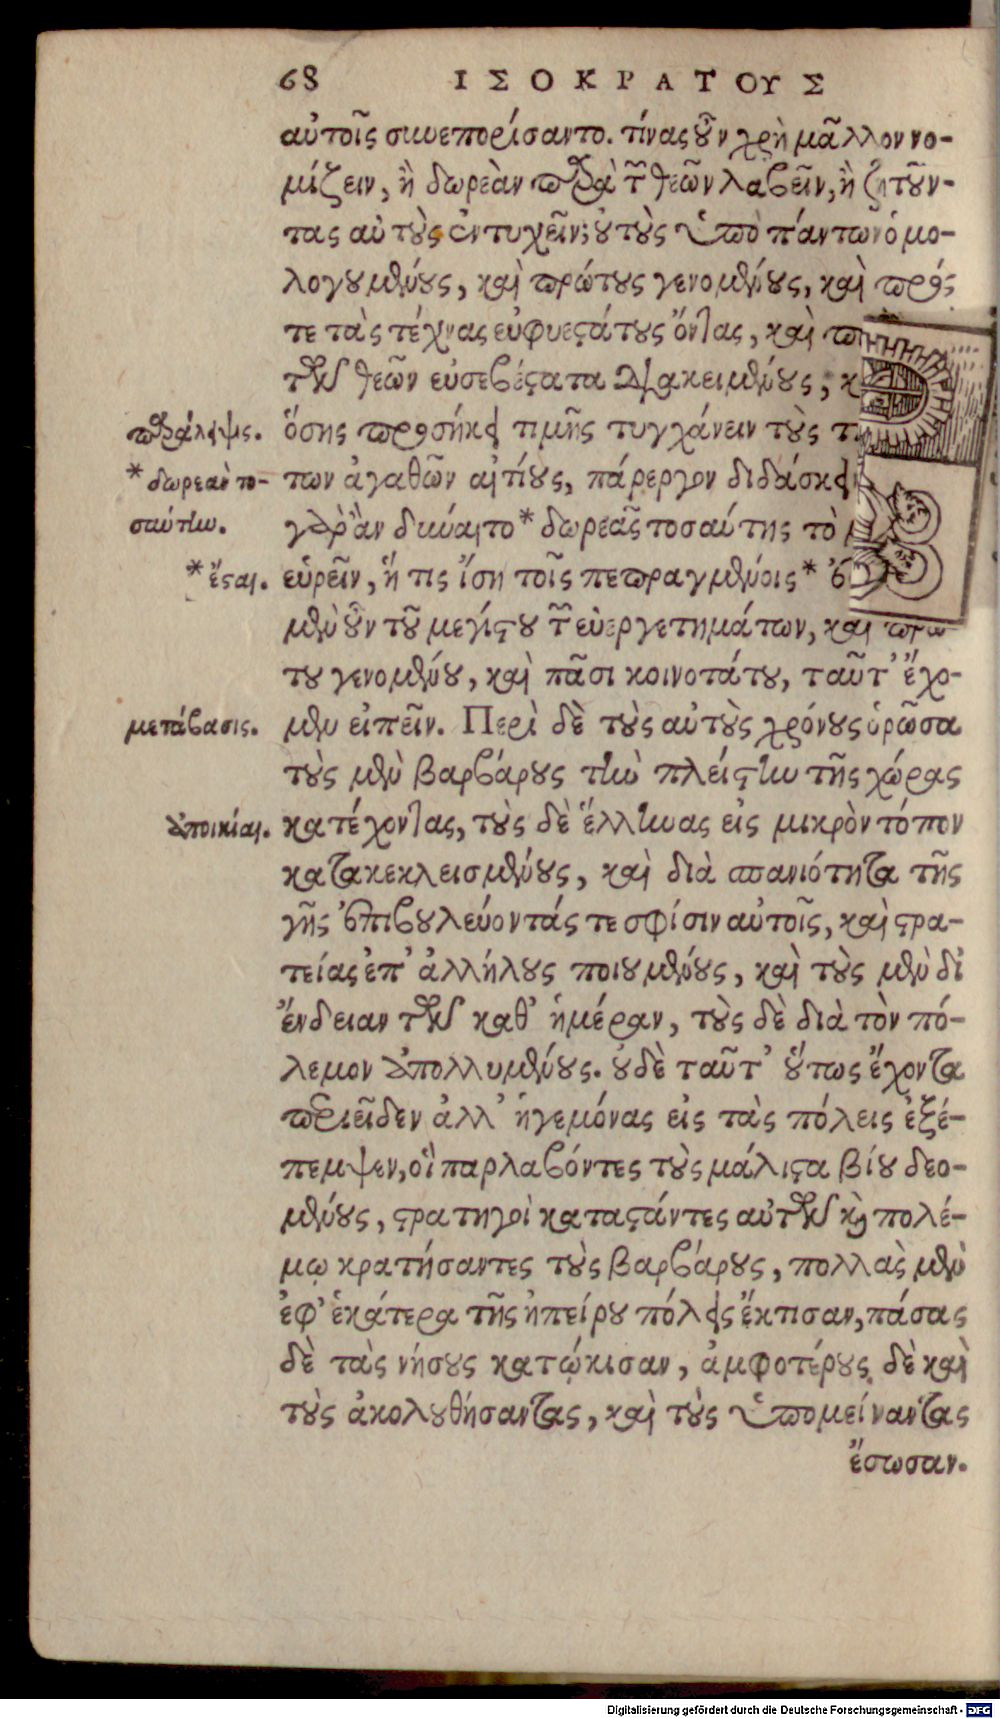 68 ΙΣΟΚΡΑΤΟΥΣ
αὐτοῖς συνεπορίσαντο. τίνας οὖν χρὴ μᾶλλον νο-
μίζειν, ἢ δωρεὰν παρὰ τῶν θεῶν λαβεῖν, ἢ ζητοῦν-
τας αὐτοὺς ἐντυχεῖν; οὐ τοὺς ὑπὸ πάντων ὁμο-
λογουμένους, καὶ πρώτους γενομένους, καὶ πρός
τε τὰς τέχνας εὐφυεστάτους ὄντας, καὶ
τῶν θεῶν εὐσεβέστατα διακειμένους,
παράλειψις. ὅσης προσήκει τιμῆς τυγχάνειν τοὺς
* δωρεὰν το- των ἀγαθῶν αἰτίους, πάρεργον διδάσκει
σαύτην. γὰρ ἂν δύναιτο * δωρεᾶς τοσαύτης τὸ
* ἔσται. εὑρεῖν, ἥ τις ἴση τοῖς πεπραγμένοις *
μὲν οὖν τοῦ μεγίστου τῶν εὐεργετημάτων, καὶ πρώ
του γενομένου, καὶ πᾶσι κοινοτάτου, ταῦτ' ἔχο-
μετάβασις. μεν εἰπεῖν. Περὶ δὲ τοὺς αὐτοὺς χρόνους ὁρῶσα
τοὺς μὲν βαρβάρους τὴν πλείστην τῆς χώρας
ἀποικίαι. κατέχοντας, τοὺς δὲ ἕλληνας εἰς μικρὸν τόπον
κατακεκλεισμένους, καὶ διὰ σπανιότητα τῆς
γῆς ἐπιβουλεύοντάς τε σφίσιν αὐτοῖς, καὶ στρα-
τείας ἐπ' ἀλλήλους ποιουμένους, καὶ τοὺς μὲν δι'
ἔνδειαν τῶν καθ' ἡμέραν, τοὺς δὲ διὰ τὸν πό-
λεμον ἀπολλυμένους. οὐδὲ ταῦτ' οὕτως ἔχοντα
περιεῖδεν ἀλλ' ἡγεμόνας εἰς τὰς πόλεις ἐξέ-
πεμψεν, οἳ παρλαβόντες τοὺς μάλιστα βίου δεο-
μένους, στρατηγοὶ καταστάντες αὐτῶν καὶ πολέ-
μῳ κρατήσαντες τοὺς βαρβάρους, πολλὰς μὲν
ἐφ' ἑκάτερα τῆς ἠπείρου πόλεις ἔκτισαν, πάσας
δὲ τὰς νήσους κατῴκισαν, ἀμφοτέρους δὲ καὶ
τοὺς ἀκολουθήσαντας, καὶ τοὺς ὑπομείναντας
ἔσωσαν.
Digitalisierung gefördert durch die Deutsche Forschungsgemeinschaft - DFG